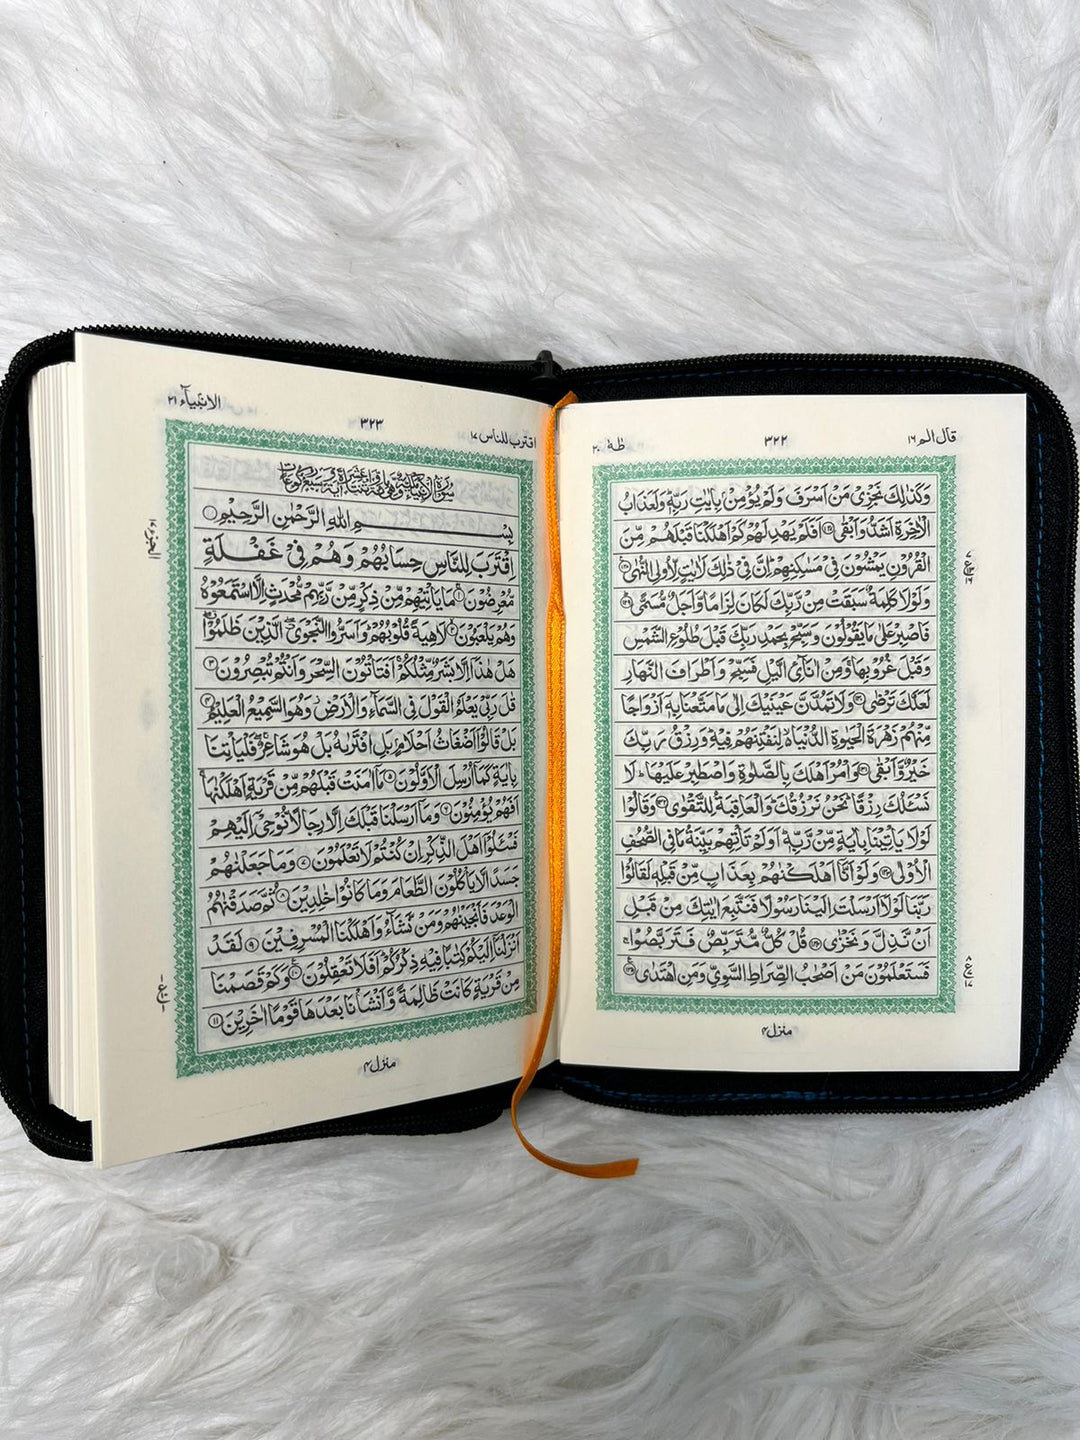 قال الم ١٦
٣٢٢
طٰهٰ ٢٠
وَكَذٰلِكَ نَجْزِيْ مَنْ اَسْرَفَ وَلَمْ يُؤْمِنْۢ بِاٰيٰتِ رَبِّهٖ ؕ وَلَعَذَابُ
الْاٰخِرَةِ اَشَدُّ وَاَبْقٰى ﴿١٢٧﴾ اَفَلَمْ يَهْدِ لَهُمْ كَمْ اَهْلَكْنَا قَبْلَهُمْ مِّنَ
الْقُرُوْنِ يَمْشُوْنَ فِيْ مَسٰكِنِهِمْ ؕ اِنَّ فِيْ ذٰلِكَ لَاٰيٰتٍ لِّاُولِي النُّهٰى ﴿١٢٨﴾
وَلَوْلَا كَلِمَةٌ سَبَقَتْ مِنْ رَّبِّكَ لَكَانَ لِزَامًا وَّاَجَلٌ مُّسَمًّى ﴿١٢٩﴾
فَاصْبِرْ عَلٰى مَا يَقُوْلُوْنَ وَسَبِّحْ بِحَمْدِ رَبِّكَ قَبْلَ طُلُوْعِ الشَّمْسِ
وَقَبْلَ غُرُوْبِهَا ۚ وَمِنْ اٰنَآئِ الَّيْلِ فَسَبِّحْ وَاَطْرَافَ النَّهَارِ
لَعَلَّكَ تَرْضٰى ﴿١٣٠﴾ وَلَا تَمُدَّنَّ عَيْنَيْكَ اِلٰى مَا مَتَّعْنَا بِهٖٓ اَزْوَاجًا
مِّنْهُمْ زَهْرَةَ الْحَيٰوةِ الدُّنْيَا ۙ لِنَفْتِنَهُمْ فِيْهِ ؕ وَرِزْقُ رَبِّكَ
خَيْرٌ وَّاَبْقٰى ﴿١٣١﴾ وَاْمُرْ اَهْلَكَ بِالصَّلٰوةِ وَاصْطَبِرْ عَلَيْهَا ؕ لَا
نَسْـَٔلُكَ رِزْقًا ؕ نَحْنُ نَرْزُقُكَ ؕ وَالْعَاقِبَةُ لِلتَّقْوٰى ﴿١٣٢﴾ وَقَالُوْا
لَوْلَا يَاْتِيْنَا بِاٰيَةٍ مِّنْ رَّبِّهٖ ؕ اَوَلَمْ تَاْتِهِمْ بَيِّنَةُ مَا فِي الصُّحُفِ
الْاُوْلٰى ﴿١٣٣﴾ وَلَوْ اَنَّآ اَهْلَكْنٰهُمْ بِعَذَابٍ مِّنْ قَبْلِهٖ لَقَالُوْا
رَبَّنَا لَوْلَآ اَرْسَلْتَ اِلَيْنَا رَسُوْلًا فَنَتَّبِعَ اٰيٰتِكَ مِنْ قَبْلِ
اَنْ نَّذِلَّ وَنَخْزٰى ﴿١٣٤﴾ قُلْ كُلٌّ مُّتَرَبِّصٌ فَتَرَبَّصُوْا ۚ
فَسَتَعْلَمُوْنَ مَنْ اَصْحٰبُ الصِّرَاطِ السَّوِيِّ وَمَنِ اهْتَدٰى ﴿١٣٥﴾
منزل ٤
اقترب للناس ١٧
٣٢٣
الانبيآء ٢١
بِسْمِ اللهِ الرَّحْمٰنِ الرَّحِيْمِ
اِقْتَرَبَ لِلنَّاسِ حِسَابُهُمْ وَهُمْ فِيْ غَفْلَةٍ
مُّعْرِضُوْنَ ﴿١﴾ مَا يَاْتِيْهِمْ مِّنْ ذِكْرٍ مِّنْ رَّبِّهِمْ مُّحْدَثٍ اِلَّا اسْتَمَعُوْهُ
وَهُمْ يَلْعَبُوْنَ ﴿٢﴾ لَاهِيَةً قُلُوْبُهُمْ ؕ وَاَسَرُّوا النَّجْوَى ۖ الَّذِيْنَ ظَلَمُوْا ۖ
هَلْ هٰذَآ اِلَّا بَشَرٌ مِّثْلُكُمْ ۚ اَفَتَاْتُوْنَ السِّحْرَ وَاَنْتُمْ تُبْصِرُوْنَ ﴿٣﴾
قٰلَ رَبِّيْ يَعْلَمُ الْقَوْلَ فِي السَّمَآءِ وَالْاَرْضِ ۚ وَهُوَ السَّمِيْعُ الْعَلِيْمُ ﴿٤﴾
بَلْ قَالُوْٓا اَضْغَاثُ اَحْلَامٍۭ بَلِ افْتَرٰىهُ بَلْ هُوَ شَاعِرٌ ۚ فَلْيَاْتِنَا
بِاٰيَةٍ كَمَآ اُرْسِلَ الْاَوَّلُوْنَ ﴿٥﴾ مَآ اٰمَنَتْ قَبْلَهُمْ مِّنْ قَرْيَةٍ اَهْلَكْنٰهَا ۚ
اَفَهُمْ يُؤْمِنُوْنَ ﴿٦﴾ وَمَآ اَرْسَلْنَا قَبْلَكَ اِلَّا رِجَالًا نُّوْحِيْٓ اِلَيْهِمْ
فَسْـَٔلُوْٓا اَهْلَ الذِّكْرِ اِنْ كُنْتُمْ لَا تَعْلَمُوْنَ ﴿٧﴾ وَمَا جَعَلْنٰهُمْ
جَسَدًا لَّا يَاْكُلُوْنَ الطَّعَامَ وَمَا كَانُوْا خٰلِدِيْنَ ﴿٨﴾ ثُمَّ صَدَقْنٰهُمُ
الْوَعْدَ فَاَنْجَيْنٰهُمْ وَمَنْ نَّشَآءُ وَاَهْلَكْنَا الْمُسْرِفِيْنَ ﴿٩﴾ لَقَدْ
اَنْزَلْنَآ اِلَيْكُمْ كِتٰبًا فِيْهِ ذِكْرُكُمْ ؕ اَفَلَا تَعْقِلُوْنَ ﴿١٠﴾ وَكَمْ قَصَمْنَا
مِنْ قَرْيَةٍ كَانَتْ ظَالِمَةً وَّاَنْشَاْنَا بَعْدَهَا قَوْمًا اٰخَرِيْنَ ﴿١١﴾
منزل ٤